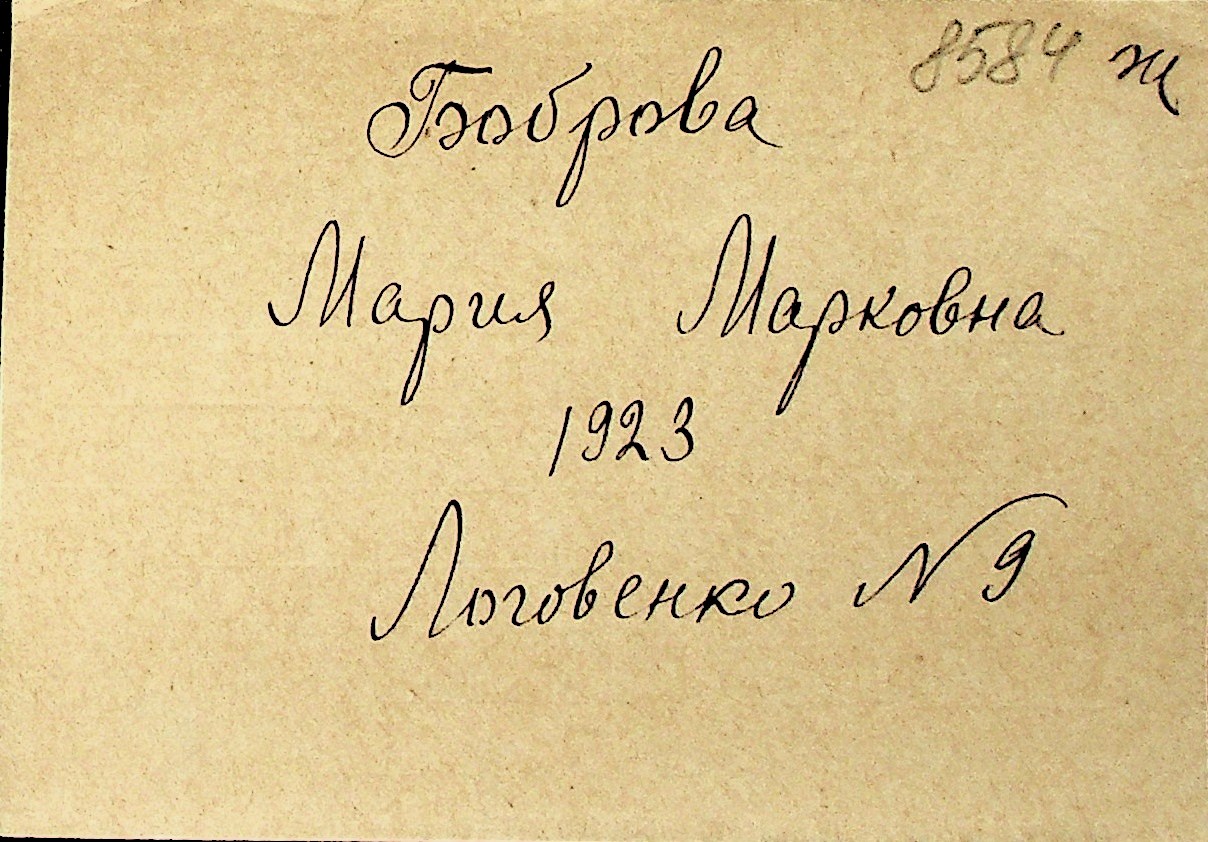 8584 ж
Боброва
Мария Марковна
1923
Логовенко N 9